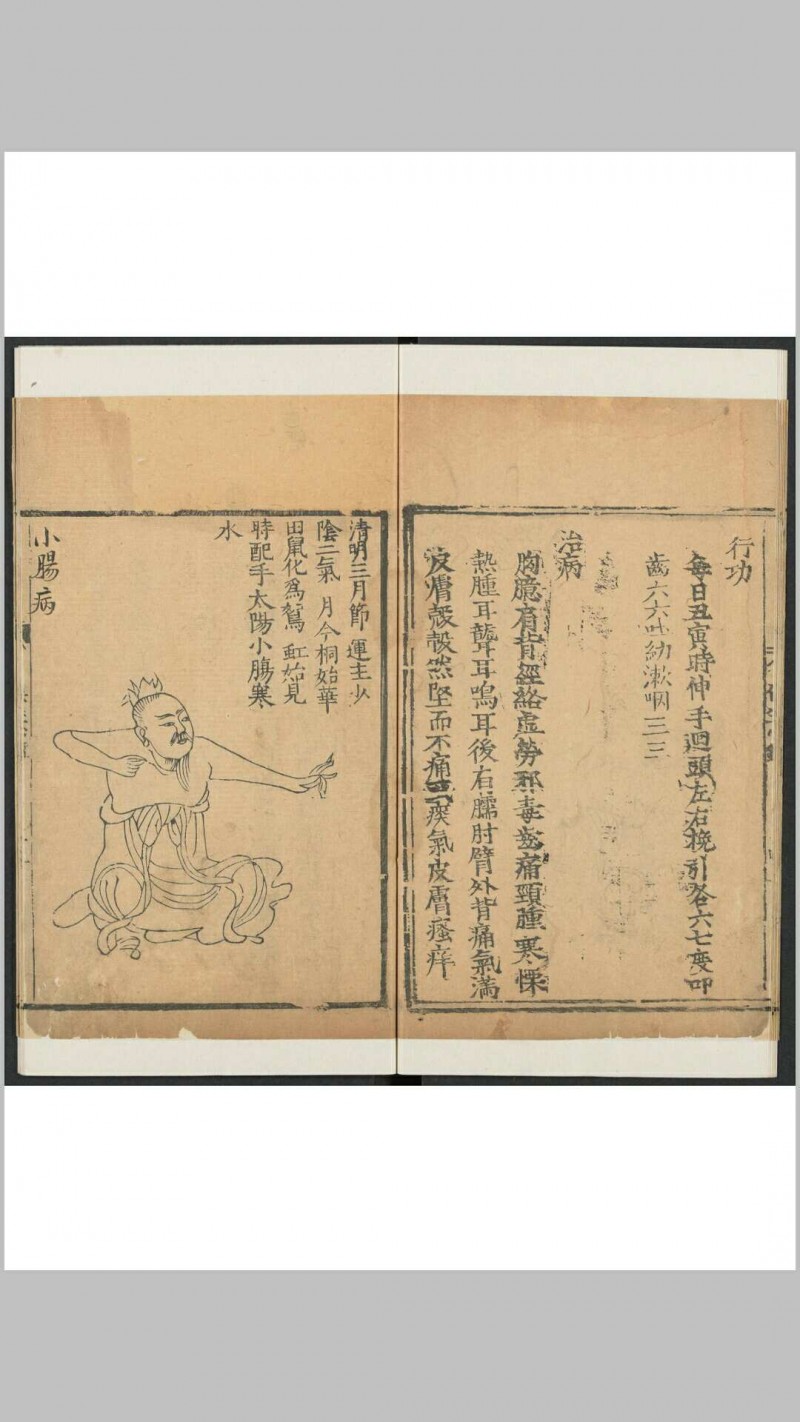 行功
每日丑寅時伸手迴頭左右挽引各六七度叩
齒六六吐納漱咽三三
治病
胸臆肩背經絡虛勞邪毒
痛頸腫寒慄
熱腫耳聾耳鳴耳後右臑肘臂外背痛氣滿
皮膚殼殼然堅而不痛
瘼氣皮膚瘙痒
清明三月節 運主少
陰二氣 月令桐始華
田鼠化為鴽 虹始見
時配手太陽小腸寒
水
小腸病